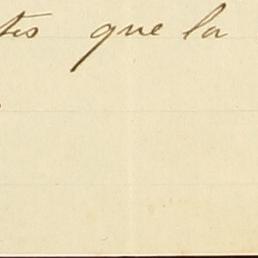 tes que la